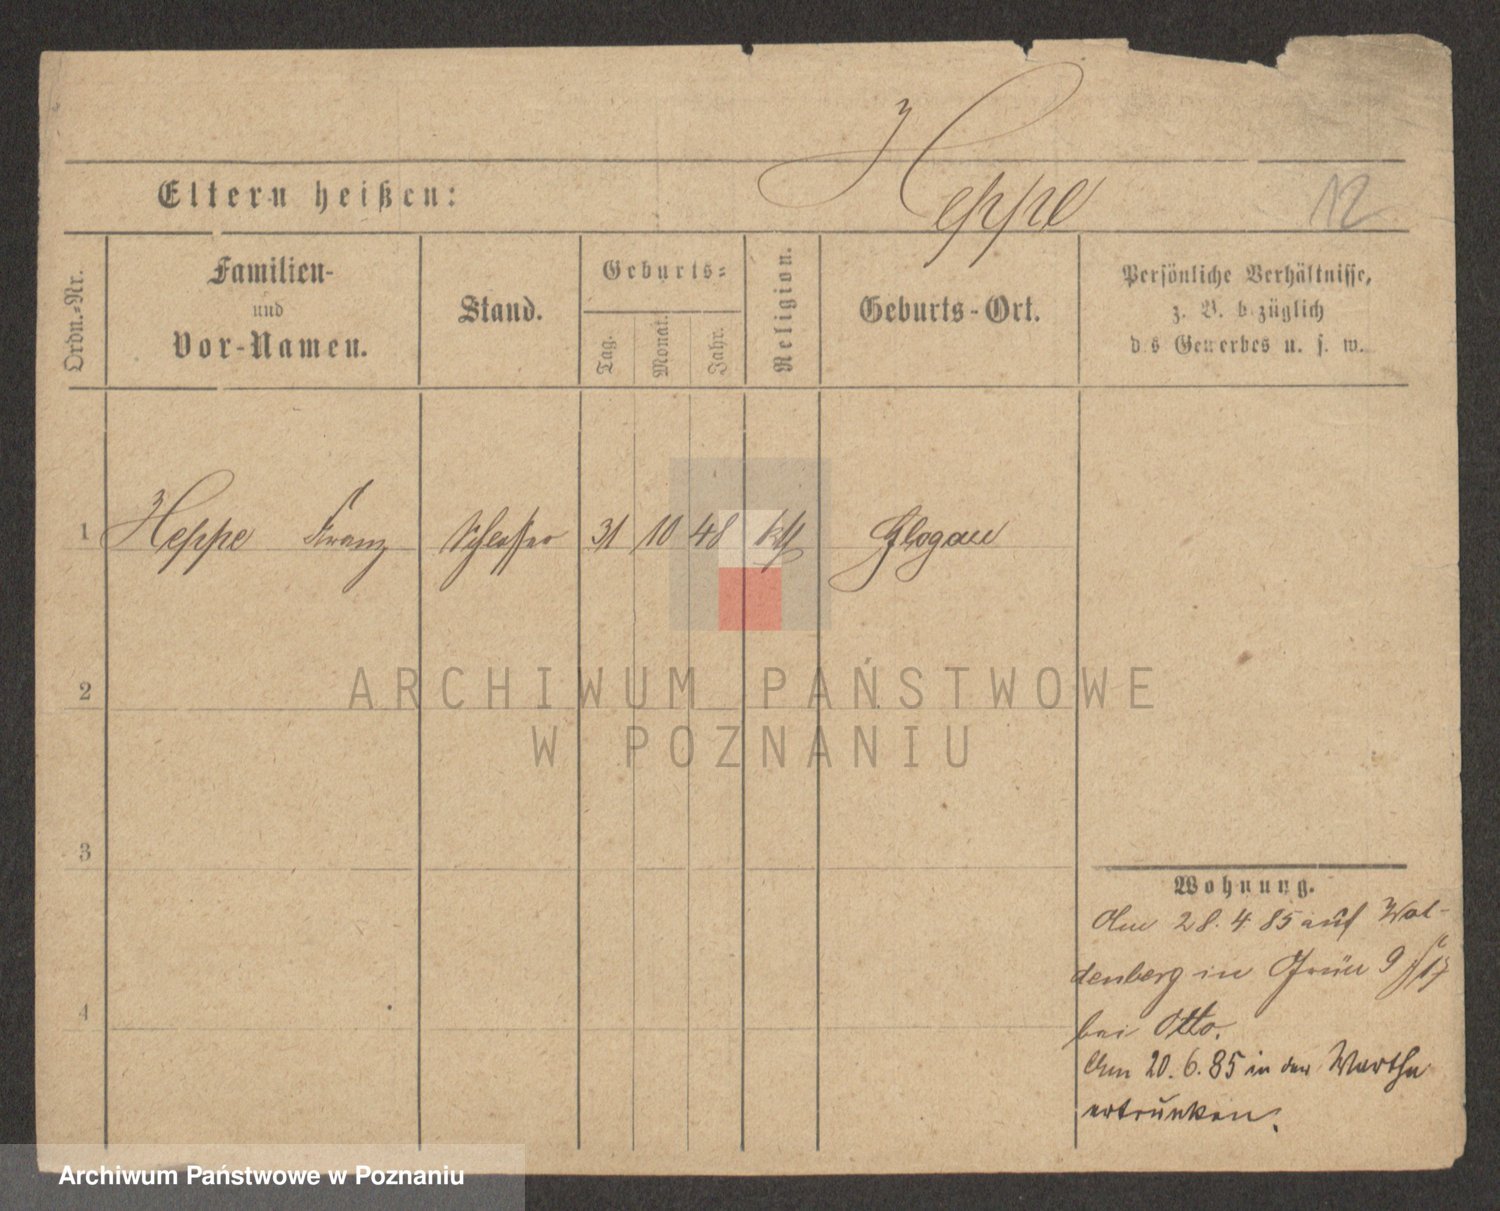 Heppe
12
Eltern heißen:
Ordn.-Nr.
Familien-
und
Vor-Namen.
Stand.
Geburts-
Tag.
Monat.
Jahr.
Religion.
Geburts-Ort.
Persönliche Verhältnisse,
z. B. bezüglich
des Gewerbes u. s. w.
1 Heppe Franz Schlosser 31 10 48 kth Glogau
2
ARCHIWUM PAŃSTWOWE
W POZNANIU
3
Wohnung.
Am 28. 4 85 auf Wal-
denberg in Grün 9
bei Otto.
4
Am 20. 6. 85 in der Warthe
ertrunken.
Archiwum Państwowe w Poznaniu